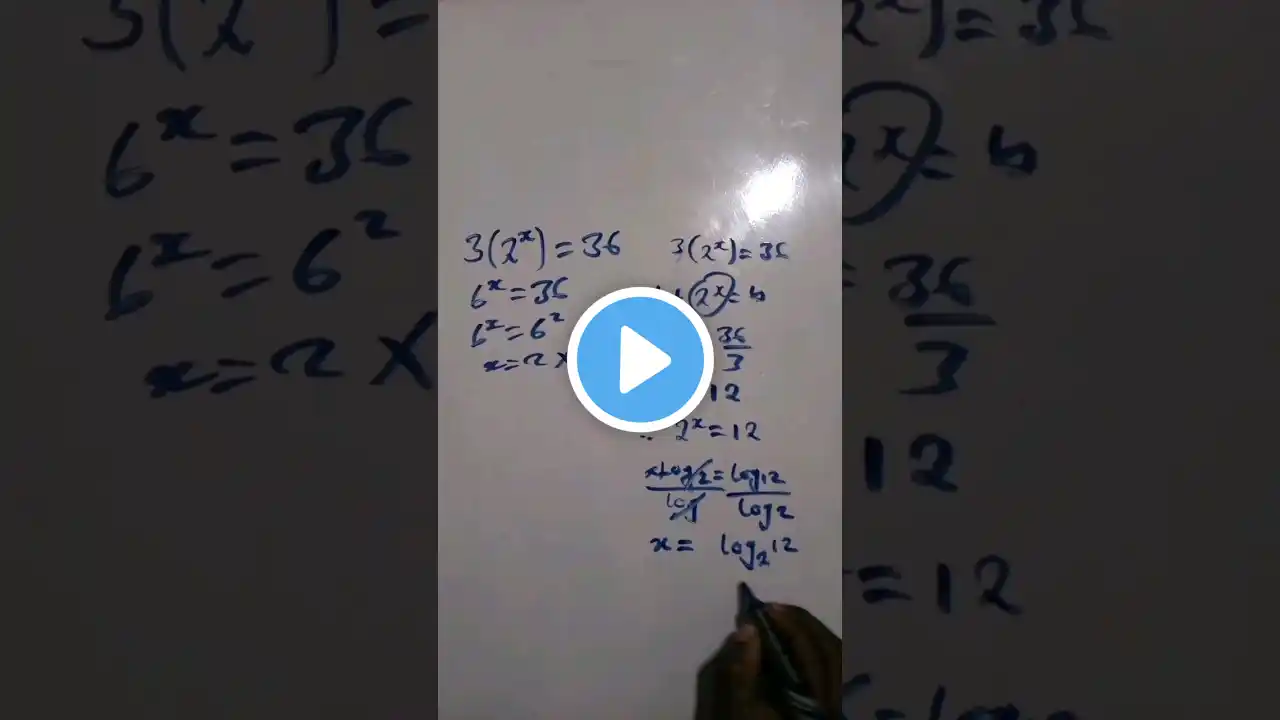 3(2ˣ)=36
6ˣ=36
6ˣ=6²
x=2 X
3(2ˣ)=36
2ˣ=b
36/3
12
2ˣ=12
xlog2/log = log12/log2
x= log₂12